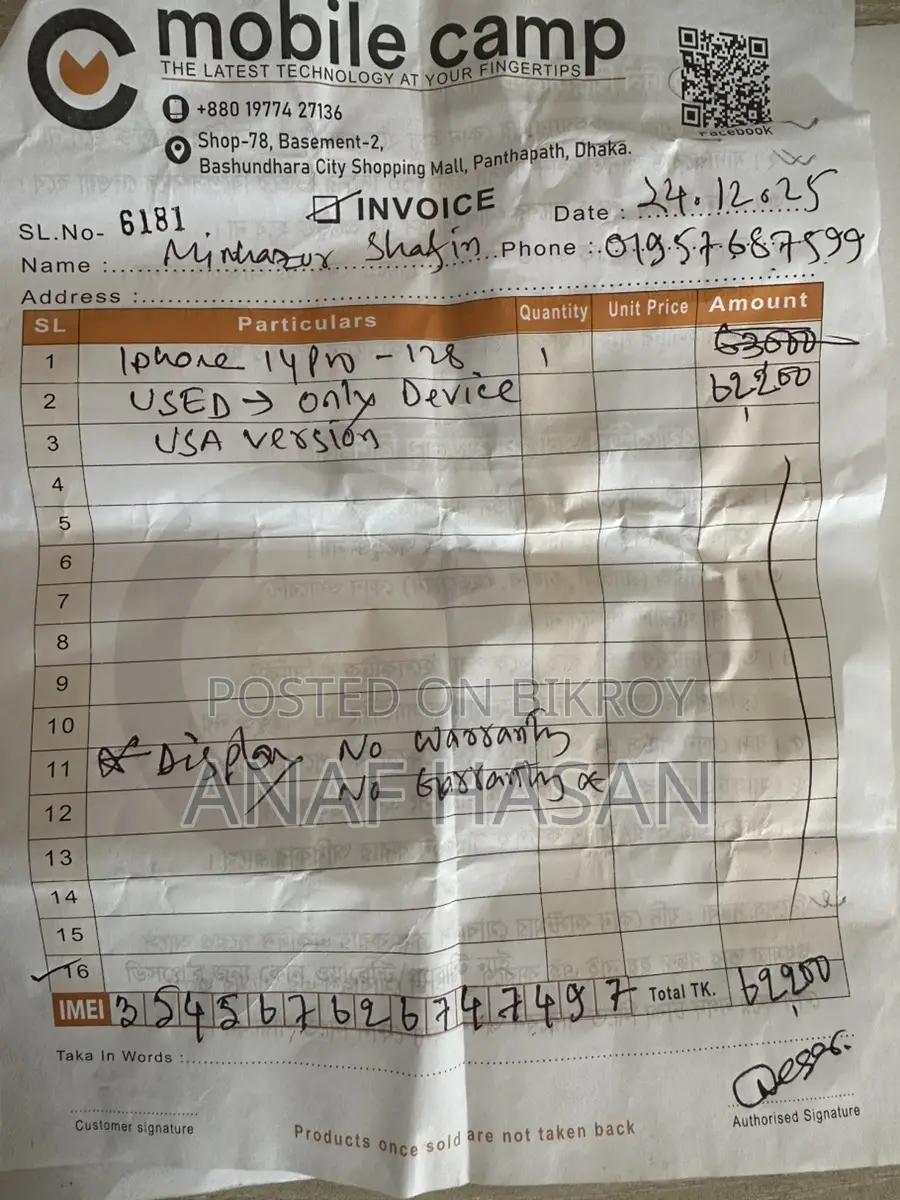 mobile camp
THE LATEST TECHNOLOGY AT YOUR FINGERTIPS
+880 19774 27136
Shop-78, Basement-2,
Bashundhara City Shopping Mall, Panthapath, Dhaka.
Facebook
INVOICE
SL.No- 6181
Date : 24.12.25
Name : Minhazur Shafin Phone : 01957687599
Address :
SL Particulars Quantity Unit Price Amount
1 Iphone 14 Pro - 128 1 63000
2 USED → Only Device 62200
3 USA version
4
5
6
7
8
9
POSTED ON BIKROY
10
11 Display No warranty
No Garranty
ANAF HASAN
12
13
14
15
16
IMEI 354567626747497 Total TK. 62200
Taka In Words :
Customer signature
Authorised Signature
Products once sold are not taken back